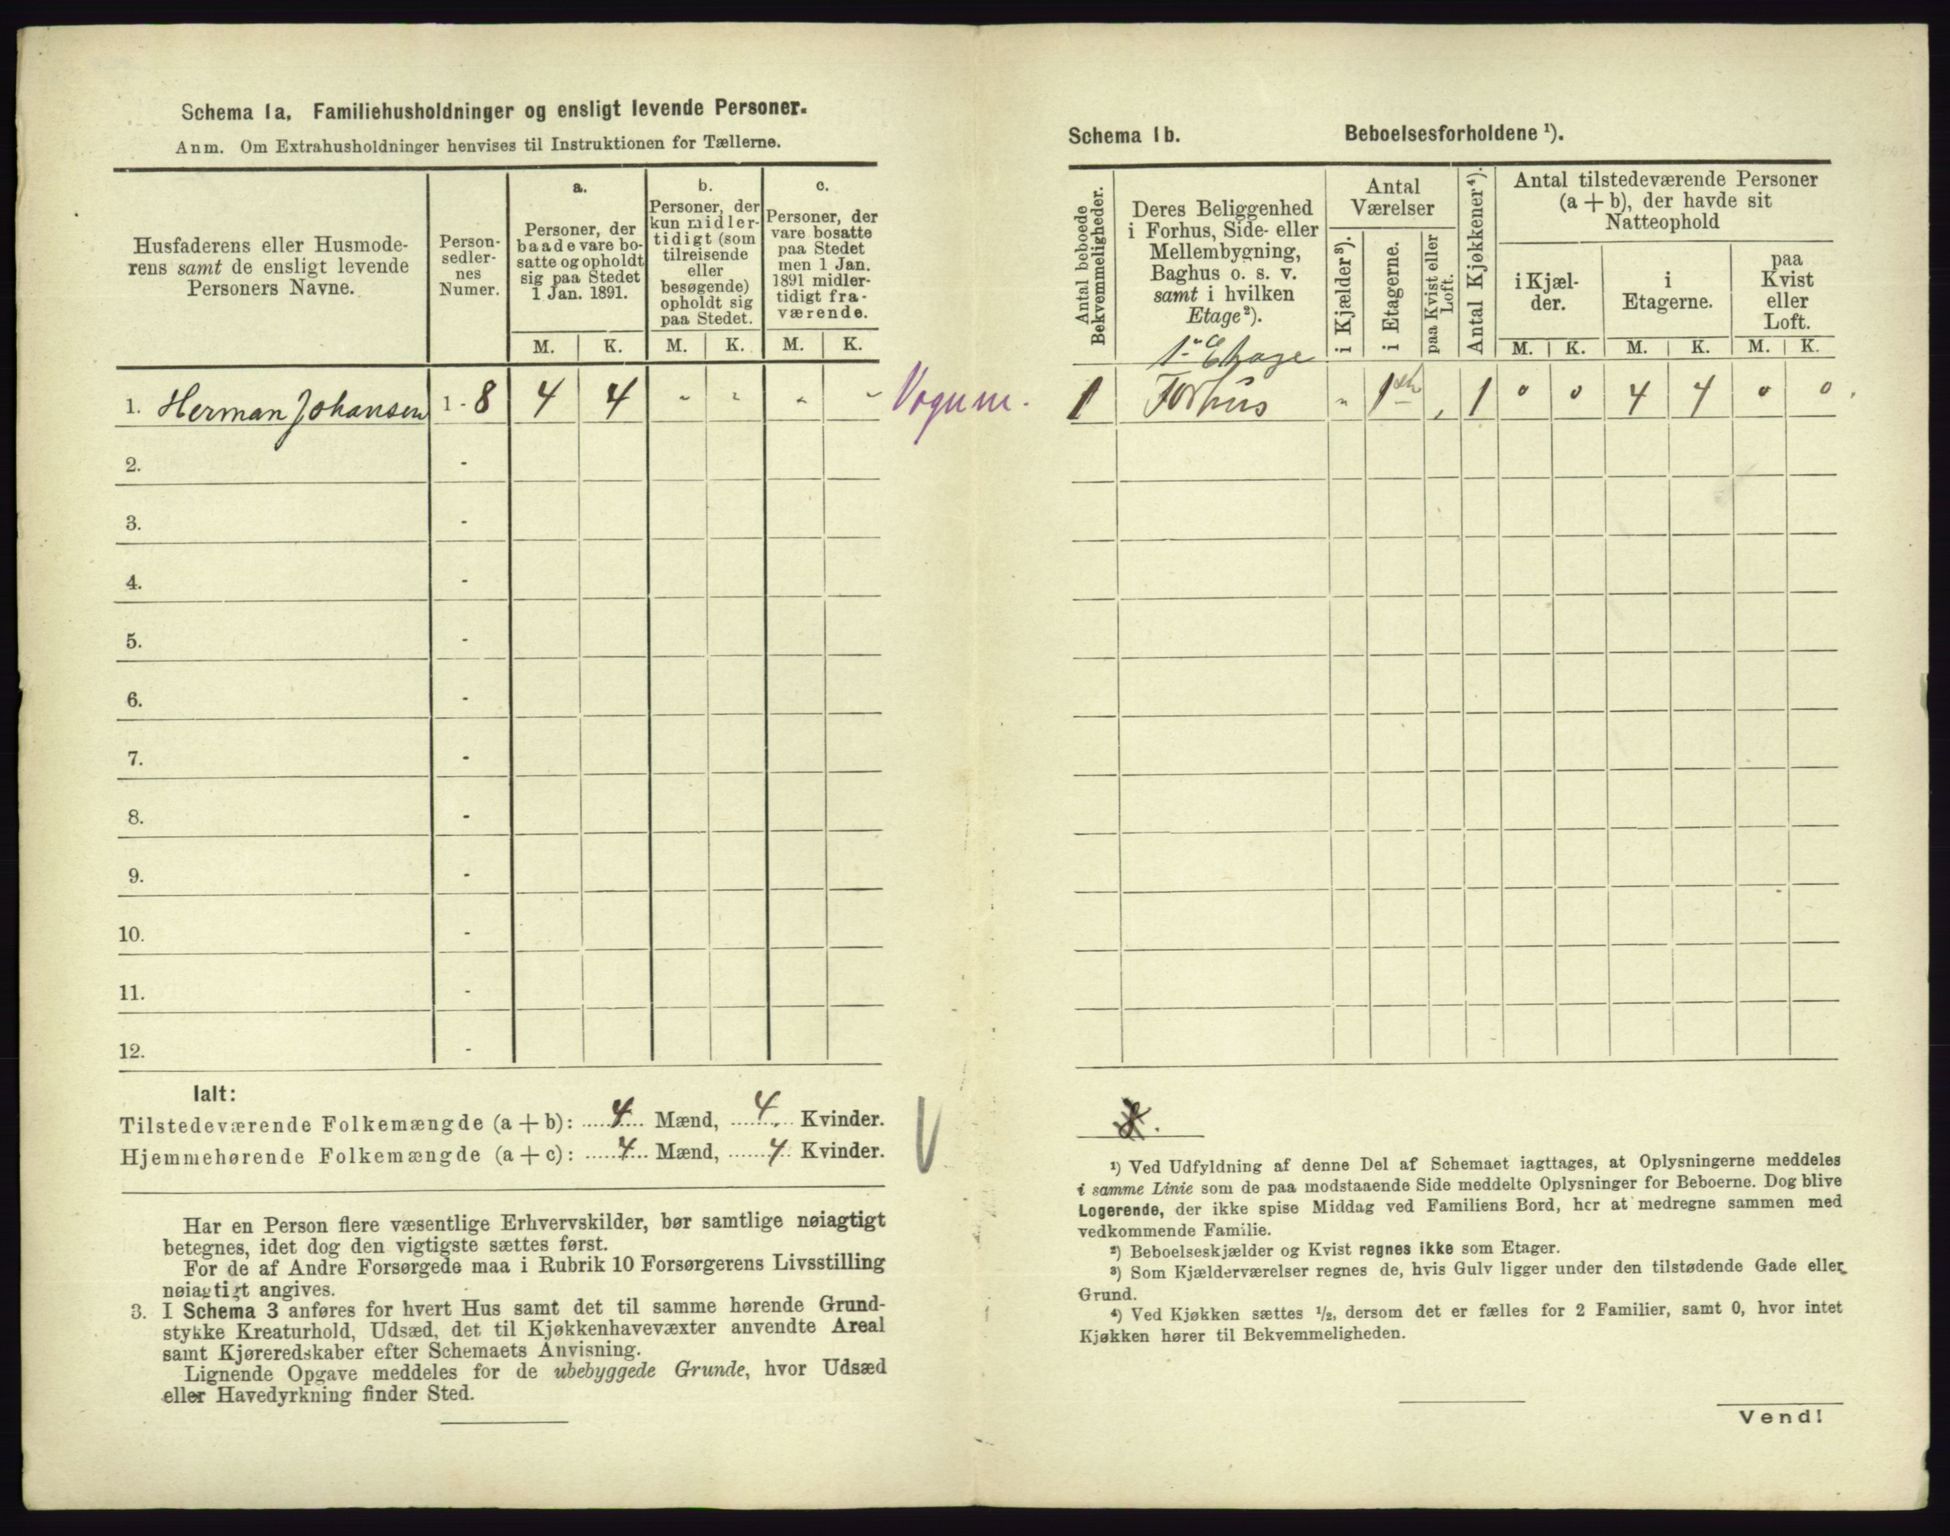 Schema 1a. Familiehusholdninger og ensligt levende Personer.
Anm. Om Extrahusholdninger henvises til Instruktionen for Tællerne.
Husfaderens eller Husmode-
rens samt de ensligt levende
Personers Navne.
Person-
sedler-
nes
Numer.
a.
Personer, der
baade vare bo-
satte og opholdt
sig paa Stedet
1 Jan. 1891.
b.
Personer, der
kun midler-
tidigt (som
tilreisende
eller
besøgende)
opholdt sig
paa Stedet.
c.
Personer, der
vare bosatte
paa Stedet
men 1 Jan.
1891 midler-
tidigt fra-
værende.
M. K. M. K. M. K.
1. Herman Johansen 1 - 8 4 4 - - - -
2. -
3. -
4. -
5. -
6. -
7. -
8. -
9. -
10. -
11. -
12. -
Ialt:
Tilstedeværende Folkemængde (a + b): 4 Mænd, 4 Kvinder.
Hjemmehørende Folkemængde (a + c): 4 Mænd, 4 Kvinder.
Har en Person flere væsentlige Erhvervskilder, bør samtlige nøiagtigt
betegnes, idet dog den vigtigste sættes først.
For de af Andre Forsørgede maa i Rubrik 10 Forsørgerens Livsstilling
nøiagtigt angives.
3. I Schema 3 anføres for hvert Hus samt det til samme hørende Grund-
stykke Kreaturhold, Udsæd, det til Kjøkkenhavevæxter anvendte Areal
samt Kjøreredskaber efter Schemaets Anvisning.
Lignende Opgave meddeles for de ubebyggede Grunde, hvor Udsæd
eller Havedyrkning finder Sted.
Schema 1b. Beboelsesforholdene ¹).
Antal beboede
Bekvemmeligheder.
Deres Beliggenhed
i Forhus, Side- eller
Mellembygning,
Baghus o. s. v.
samt i hvilken
Etage²).
Antal
Værelser
i Kjælder³).
i Etagerne.
paa Kvist eller
Loft.
Antal Kjøkkener⁴).
Antal tilstedeværende Personer
(a + b), der havde sit
Natteophold
i Kjæl-
der.
i
Etagerne.
paa
Kvist
eller
Loft.
M. K. M. K. M. K.
1ᵉ Etage
1 Forhus " 1 , 1 0 0 4 4 0 0
¹) Ved Udfyldning af denne Del af Schemaet iagttages, at Oplysningerne meddeles
i samme Linie som de paa modstaaende Side meddelte Oplysninger for Beboerne. Dog blive
Logerende, der ikke spise Middag ved Familiens Bord, her at medregne sammen med
vedkommende Familie.
²) Beboelseskjælder og Kvist regnes ikke som Etager.
³) Som Kjælderværelser regnes de, hvis Gulv ligger under den tilstødende Gade eller
Grund.
⁴) Ved Kjøkken sættes ½, dersom det er fælles for 2 Familier, samt 0, hvor intet
Kjøkken hører til Bekvemmeligheden.
Vend!